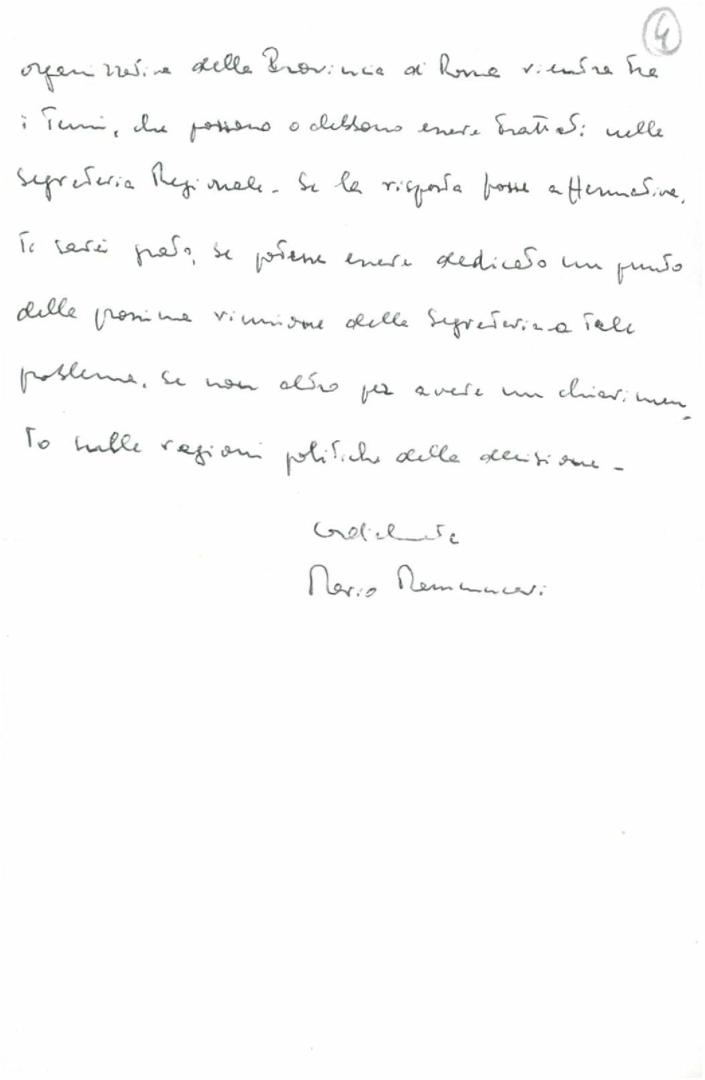 4
organizzativa della Provincia di Roma rientra tra
i Temi, che possono o debbono essere trattati nella
Segreteria Regionale. Se la risposta fosse affermativa,
Ti sarei grato, se potesse essere dedicato un punto
della prossima riunione della Segreteria a tale
problema, se non altro per avere un chiarimen-
to sulle ragioni politiche della decisione -
Cordialmente
Mario Mammucari